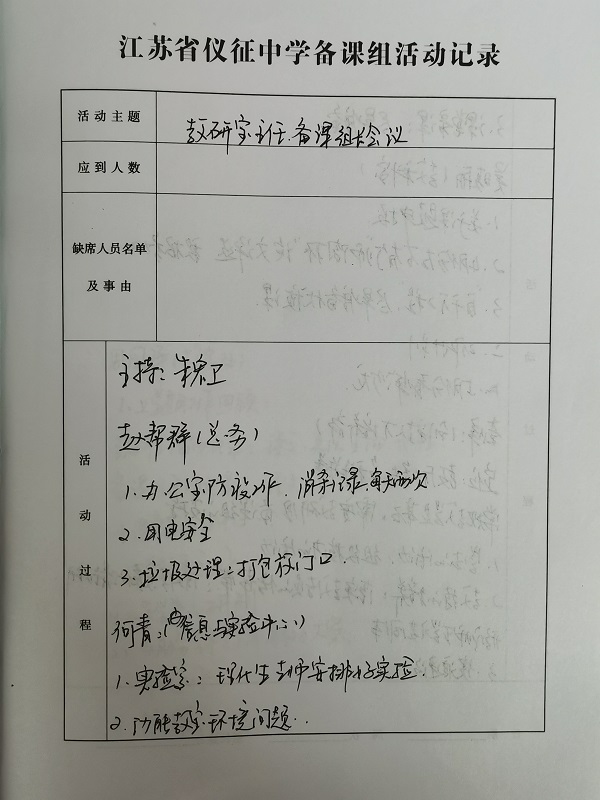 江苏省仪征中学备课组活动记录
活动主题
教研室主任、备课组长会议
应到人数
缺席人员名单
及事由
活动过程
主持：朱宏卫
赵帮群（总务）
1.办公室防疫工作，消杀记录，每天两次
2.用电安全
3.垃圾处理：打包放门口
何青：（信息与实验中心）
1.实验室：理化生老师安排好实验.
2.功能教室环境问题.